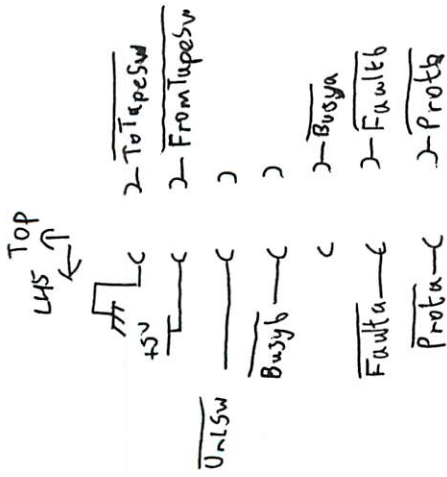 TOP
LHS
ToTapeSw
+5V
FromTapeSw
UnLSw
Busyb
Busya
Faulta
Faultb
Prota
Protb